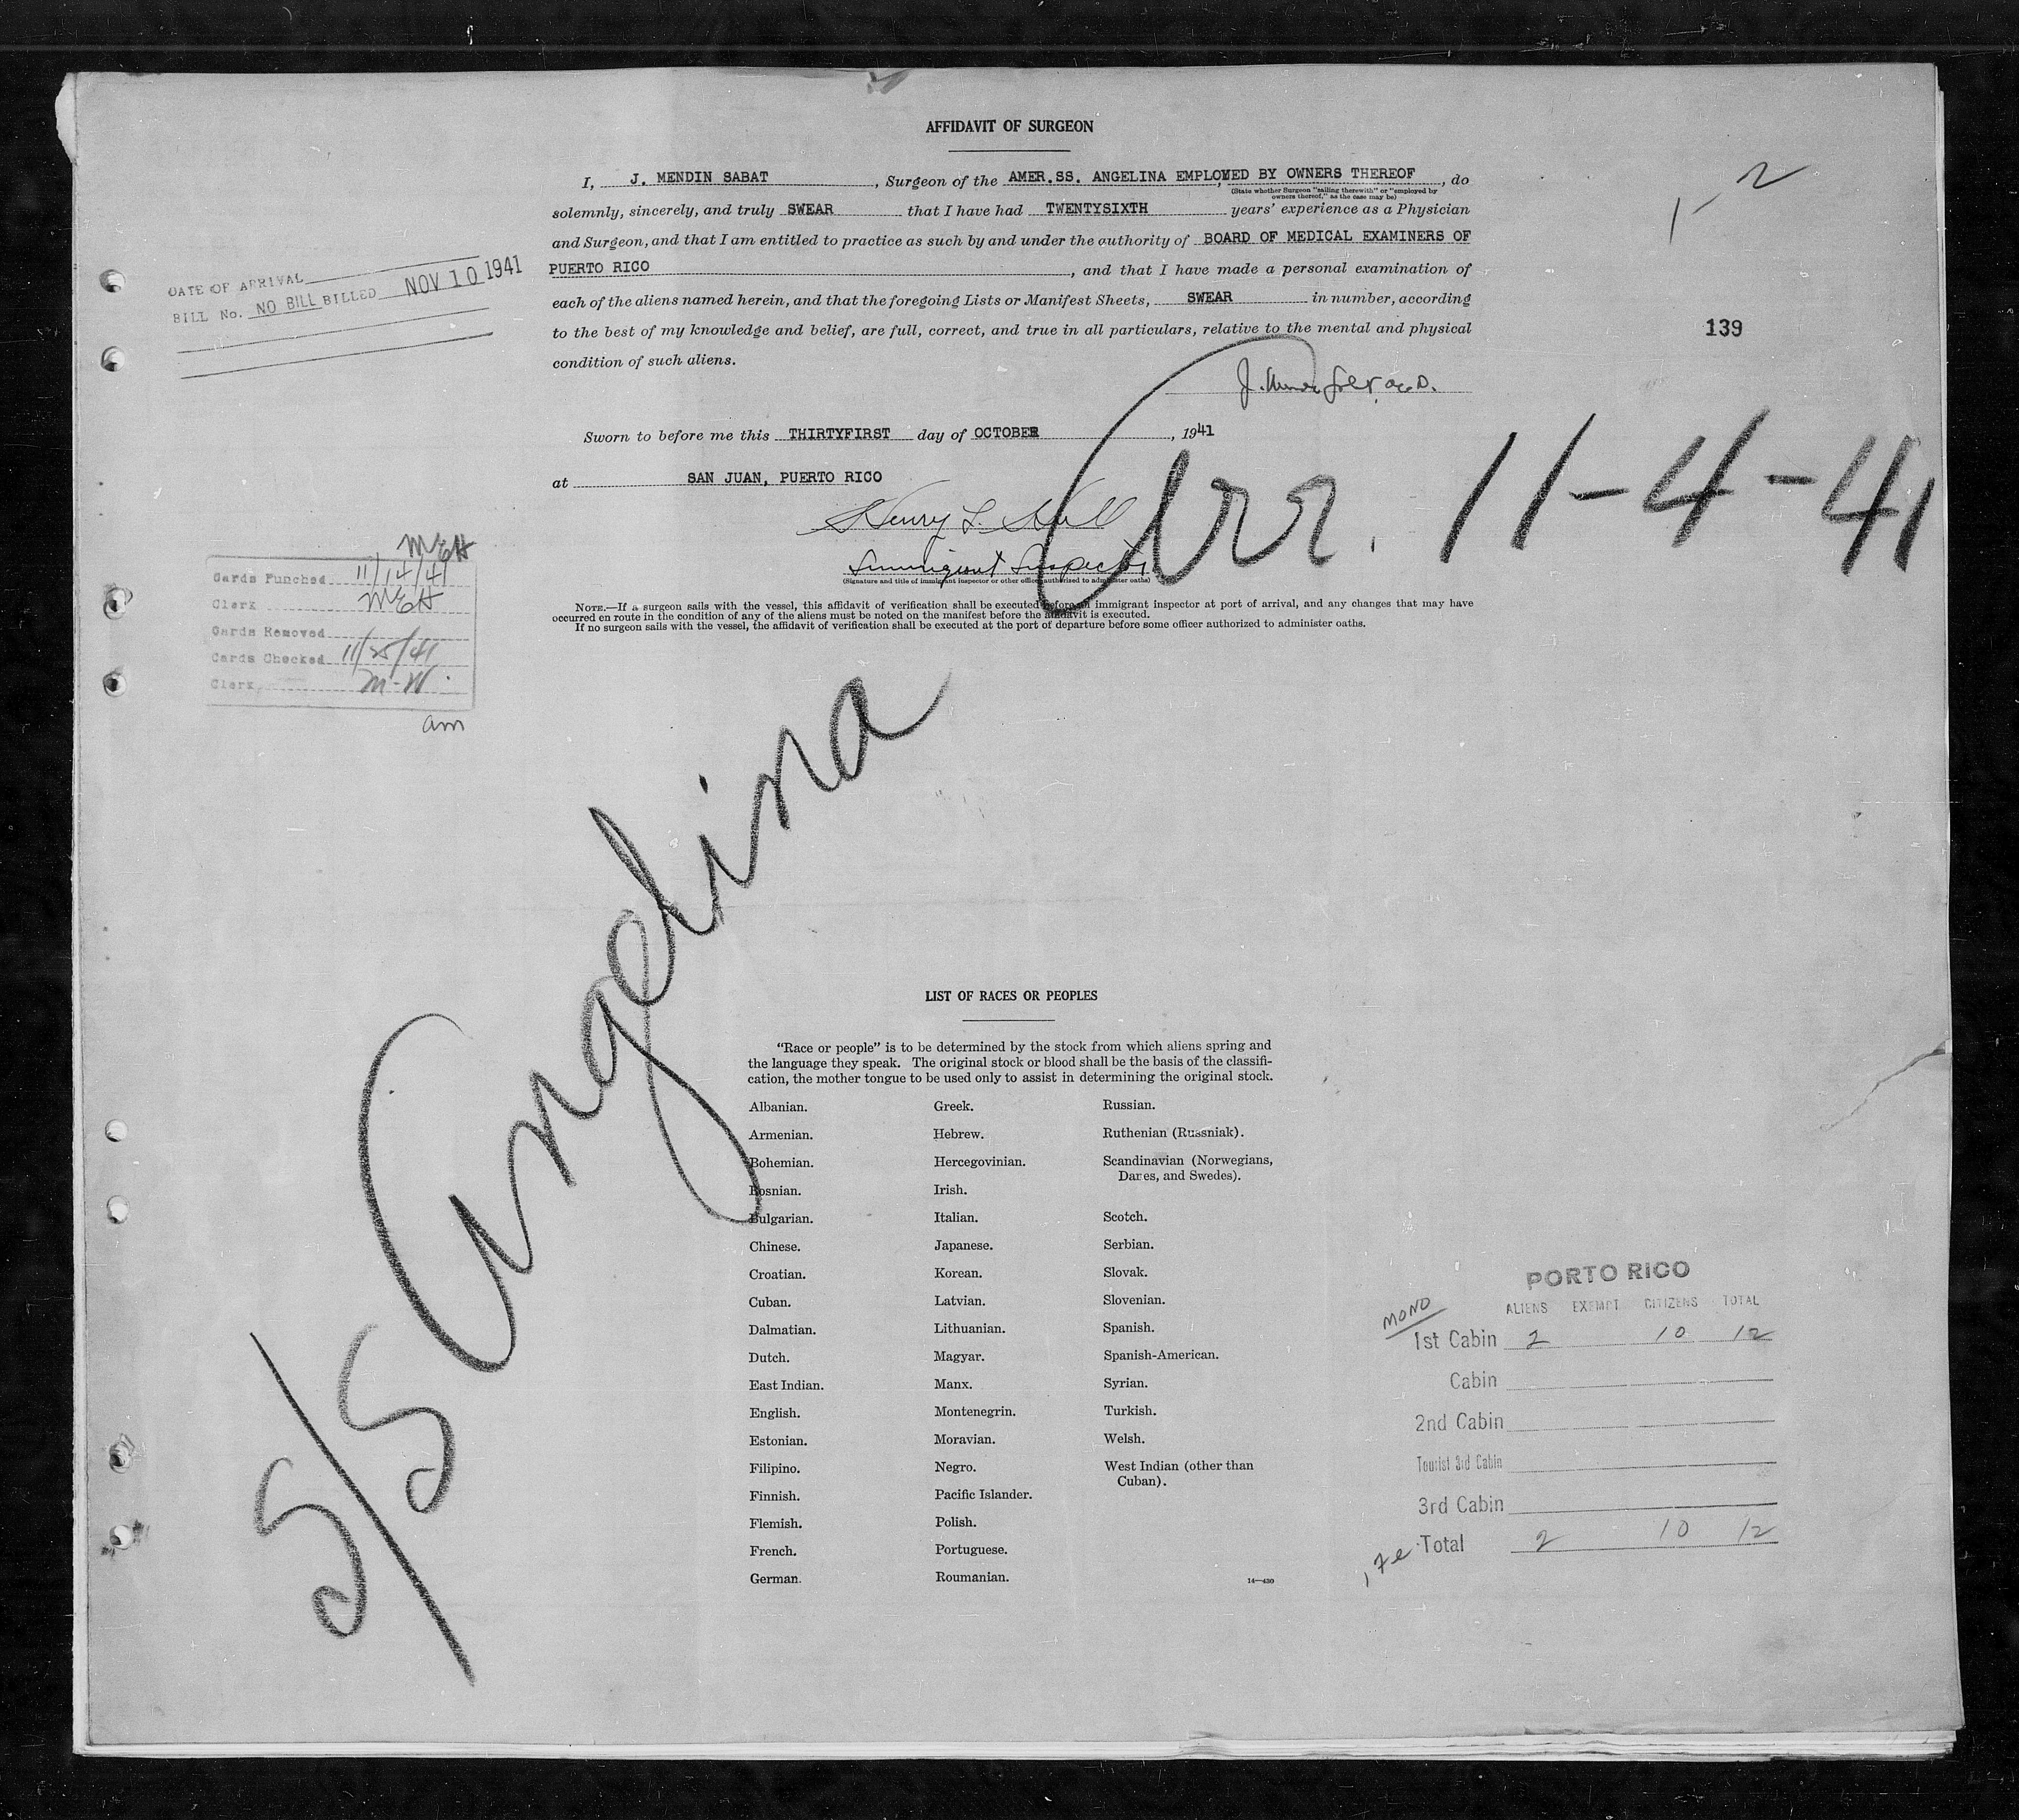 AFFIDAVIT OF SURGEON
I, J. MENDIN SABAT, Surgeon of the AMER.SS. ANGELINA EMPLOYED BY OWNERS THEREOF, do
(State whether Surgeon "sailing therewith" or "employed by
owners thereof," as the case may be)
solemnly, sincerely, and truly SWEAR that I have had TWENTYSIXTH years' experience as a Physician
and Surgeon, and that I am entitled to practice as such by and under the authority of BOARD OF MEDICAL EXAMINERS OF
PUERTO RICO, and that I have made a personal examination of
each of the aliens named herein, and that the foregoing Lists or Manifest Sheets, SWEAR in number, according
to the best of my knowledge and belief, are full, correct, and true in all particulars, relative to the mental and physical
condition of such aliens.
2
1
139
DATE OF ARRIVAL
BILL No. NO BILL BILLED NOV 10 1941
Sworn to before me this THIRTYFIRST day of OCTOBER, 1941
at SAN JUAN, PUERTO RICO
Arr. 11-4-41
Henry L. Hull
Immigrant Inspector
(Signature and title of immigrant inspector or other officer authorized to administer oaths)
NOTE.—If a surgeon sails with the vessel, this affidavit of verification shall be executed before an immigrant inspector at port of arrival, and any changes that may have
occurred en route in the condition of any of the aliens must be noted on the manifest before the affidavit is executed.
If no surgeon sails with the vessel, the affidavit of verification shall be executed at the port of departure before some officer authorized to administer oaths.
MEH
Cards Punched 11/14/41
Clerk MEH
Cards Removed
Cards Checked 11/25/41
Clerk M-W.
am
S/S Angelina
LIST OF RACES OR PEOPLES
"Race or people" is to be determined by the stock from which aliens spring and
the language they speak. The original stock or blood shall be the basis of the classifi-
cation, the mother tongue to be used only to assist in determining the original stock.
Albanian.
Armenian.
Bohemian.
Bosnian.
Bulgarian.
Chinese.
Croatian.
Cuban.
Dalmatian.
Dutch.
East Indian.
English.
Estonian.
Filipino.
Finnish.
Flemish.
French.
German.
Greek.
Hebrew.
Hercegovinian.
Irish.
Italian.
Japanese.
Korean.
Latvian.
Lithuanian.
Magyar.
Manx.
Montenegrin.
Moravian.
Negro.
Pacific Islander.
Polish.
Portuguese.
Roumanian.
Russian.
Ruthenian (Russniak).
Scandinavian (Norwegians,
Danes, and Swedes).
Scotch.
Serbian.
Slovak.
Slovenian.
Spanish.
Spanish-American.
Syrian.
Turkish.
Welsh.
West Indian (other than
Cuban).
14—430
PORTO RICO
MONO
ALIENS EXEMPT CITIZENS TOTAL
1st Cabin 2 10 12
Cabin
2nd Cabin
Tourist 3rd Cabin
3rd Cabin
Total 2 10 12